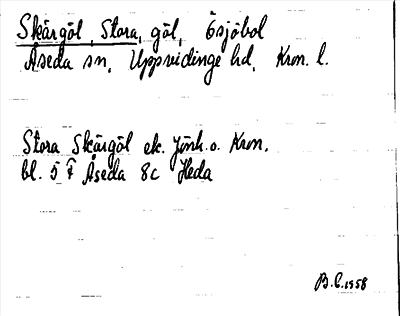 Skärgöl, Stora, göl, Ösjöbol
Åseda sn, Uppvidinge hd, Kron. l.
Stora Skärgöl ek. Jönk. o. Kron.
bl. 5 F Åseda 8c Heda
B.E. 1958